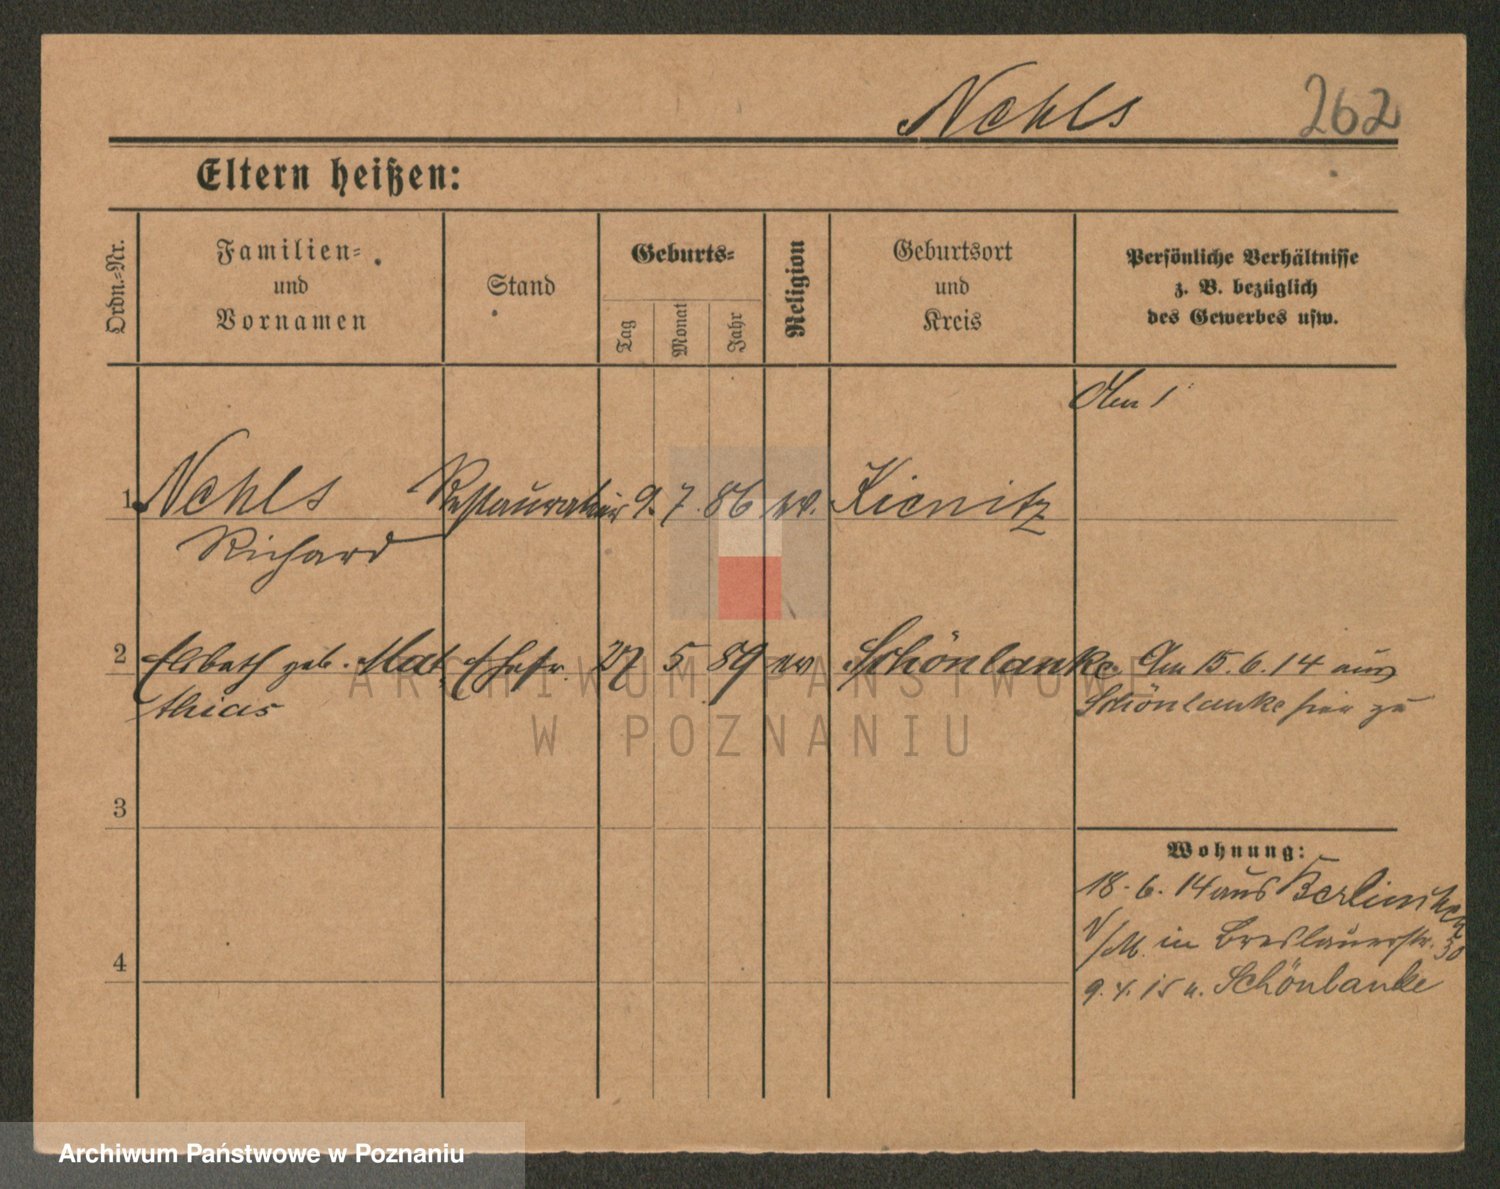 Nehls 262
Eltern heißen:
Ordn.-Nr.
Familien-
und
Vornamen
Stand
Geburts-
Tag
Monat
Jahr
Religion
Geburtsort
und
Kreis
Persönliche Verhältnisse
z. B. bezüglich
des Gewerbes usw.
1 Nehls Restaurateur 9. 7. 86 ev. Kienitz
Richard
2 Elsbeth geb. Mat Ehefr. 27 5 89 ev Schönlanke Am 15.6.14 aus
thias Schönlanke hier zu
3
Wohnung:
18.6.14 aus Berlinerstr.
in Breslauerstr. 30
4
9. 4. 15 n. Schönlanke
ARCHIWUM PAŃSTWOWE
W POZNANIU
Archiwum Państwowe w Poznaniu